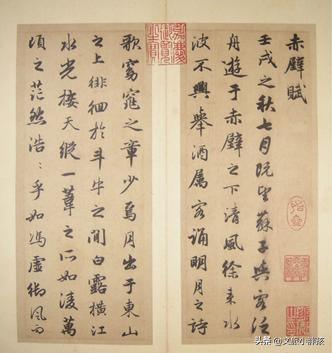 赤壁賦
壬戌之秋七月既望蘇子與客泛
舟遊于赤壁之下清風徐來水
波不興舉酒属客誦明月之詩
歌窈窕之章少焉月出于東山
之上徘徊於斗牛之間白露橫江
水光接天縱一葦之所如凌萬
頃之茫然浩〻乎如馮虛御風而
头条 @文旅小